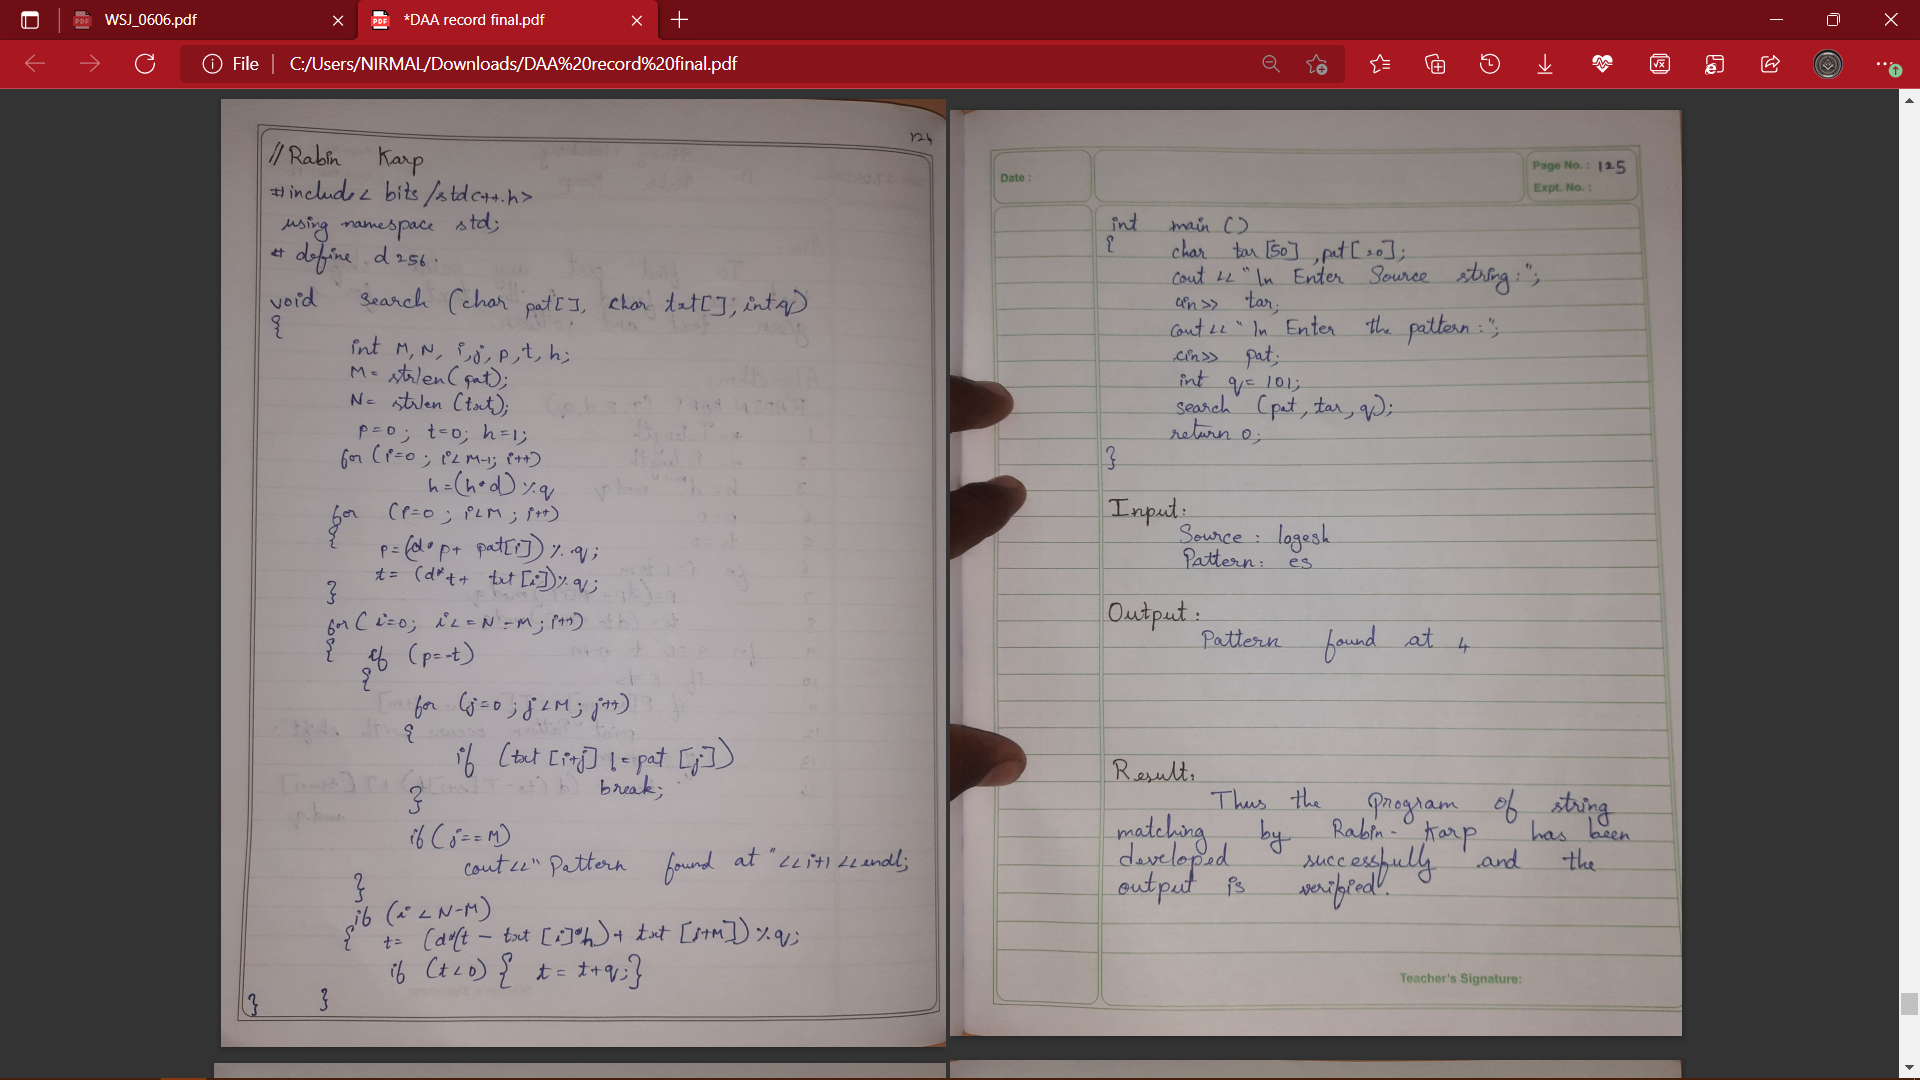 WSJ_0606.pdf
*DAA record final.pdf
File
C:/Users/NIRMAL/Downloads/DAA%20record%20final.pdf
124
// Rabin Karp
#include< bits/stdc++.h>
using namespace std;
# define d 256.
void search (char pat[], char txt[], int q)
{
int M, N, i, j, p, t, h;
M = strlen(pat);
N = strlen (txt);
p=0; t=0; h=1;
for (i=0; i<M-1; i++)
h=(h*d) % q
for (i=0; i<M; i++)
{
p=(d*p+ pat[i]) % q;
t= (d*t+ txt [i])% q;
}
for (i=0; i<=N-M; i++)
{ if (p==t)
{
for (j=0; j<M; j++)
{
if (txt [i+j] != pat [j])
break;
}
if (j==M)
cout<<"Pattern found at "<<i+1<<endl;
}
if (i<N-M)
{ t= (d*(t - txt [i]*h)+ txt [i+M]) % q;
if (t<0) { t = t+q;}
} }
Date :
Page No. : 125
Expt. No. :
int main ()
{
char tar [50], pat[20];
cout << "\n Enter Source string:";
cin>> tar;
cout<< "\n Enter the pattern:";
cin>> pat;
int q= 101;
search (pat, tar, q);
return 0;
}
Input:
Source : logesh
Pattern: es
Output:
Pattern found at 4
Result:
Thus the program of string
matching by Rabin-Karp has been
developed successfully and the
output is verified.
Teacher's Signature: